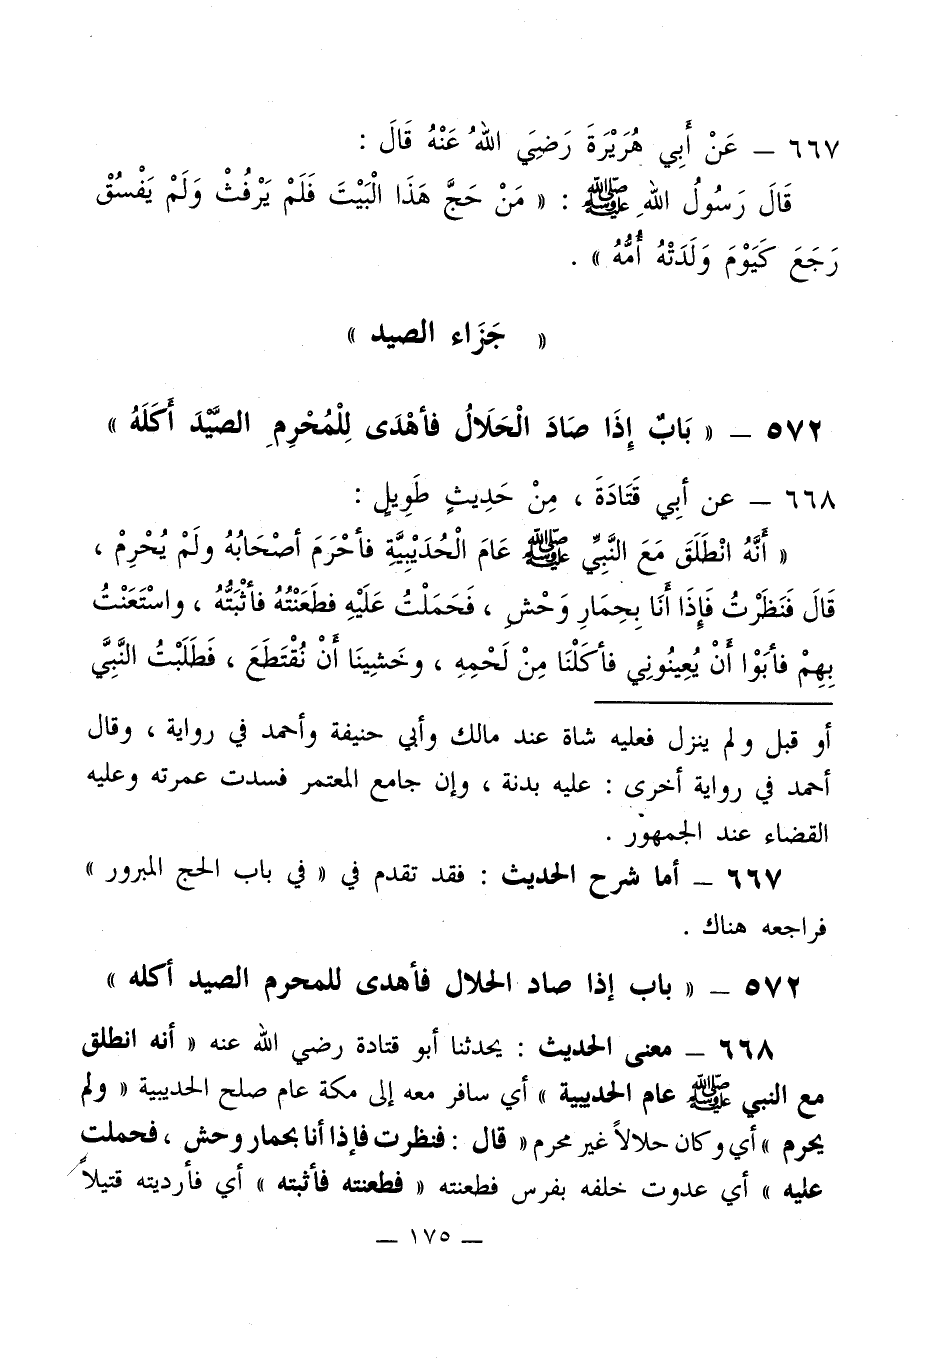 ٦٦٧ ــ عَنْ أَبِي هُرَيْرَةَ رَضِيَ اللهُ عَنْهُ قَالَ :
قَالَ رَسُولُ اللهِ ﷺ : « مَنْ حَجَّ هَذَا الْبَيْتَ فَلَمْ يَرْفُثْ وَلَمْ يَفْسُقْ
رَجَعَ كَيَوْمَ وَلَدَتْهُ أُمُّهُ » .
« جَزَاء الصيد »
٥٧٢ ــ « بَابٌ إِذَا صَادَ الْحَلَالُ فأهْدَى لِلْمُحْرِمِ الصَّيْدَ أَكَلَهُ »
٦٦٨ ــ عن أبِي قَتَادَةَ ، مِنْ حَدِيثٍ طَوِيلٍ :
« أَنَّهُ انْطَلَقَ مَعَ النَّبِيِّ ﷺ عَامَ الْحُدَيْبِيَّةِ فأحْرَمَ أصْحَابُهُ ولَمْ يُحْرِمْ ،
قَالَ فَنَظَرْتُ فَإِذَا أَنَا بِحِمَارِ وَحْشٍ ، فَحَمَلْتُ عَلَيْهِ فطَعَنْتُهُ فأثْبَتُّهُ ، واسْتَعَنْتُ
بِهِمْ فأبَوْا أَنْ يُعِينُونِي فأكَلْنَا مِنْ لَحْمِهِ ، وخَشِينَا أَنْ نُقْتَطَعَ ، فَطَلَبْتُ النَّبِيَّ
أو قبل ولم ينزل فعليه شاة عند مالك وأبي حنيفة وأحمد في رواية ، وقال
أحمد في رواية أخرى : عليه بدنة ، وإن جامع المعتمر فسدت عمرته وعليه
القضاء عند الجمهور .
٦٦٧ ــ أما شرح الحديث : فقد تقدم في « في باب الحج المبرور »
فراجعه هناك .
٥٧٢ ــ « باب إذا صاد الحلال فأهدى للمحرم الصيد أكله »
٦٦٨ ــ معنى الحديث : يحدثنا أبو قتادة رضي الله عنه « أنه انطلق
مع النبي ﷺ عام الحديبية » أي سافر معه إلى مكة عام صلح الحديبية « ولم
يحرم » أي وكان حلالاً غير محرم « قال : فنظرت فإذا أنا بحمار وحش ، فحملت
عليه » أي عدوت خلفه بفرس فطعنته « فطعنته فأثبته » أي فأرديته قتيلاً
ــ ١٧٥ ــ